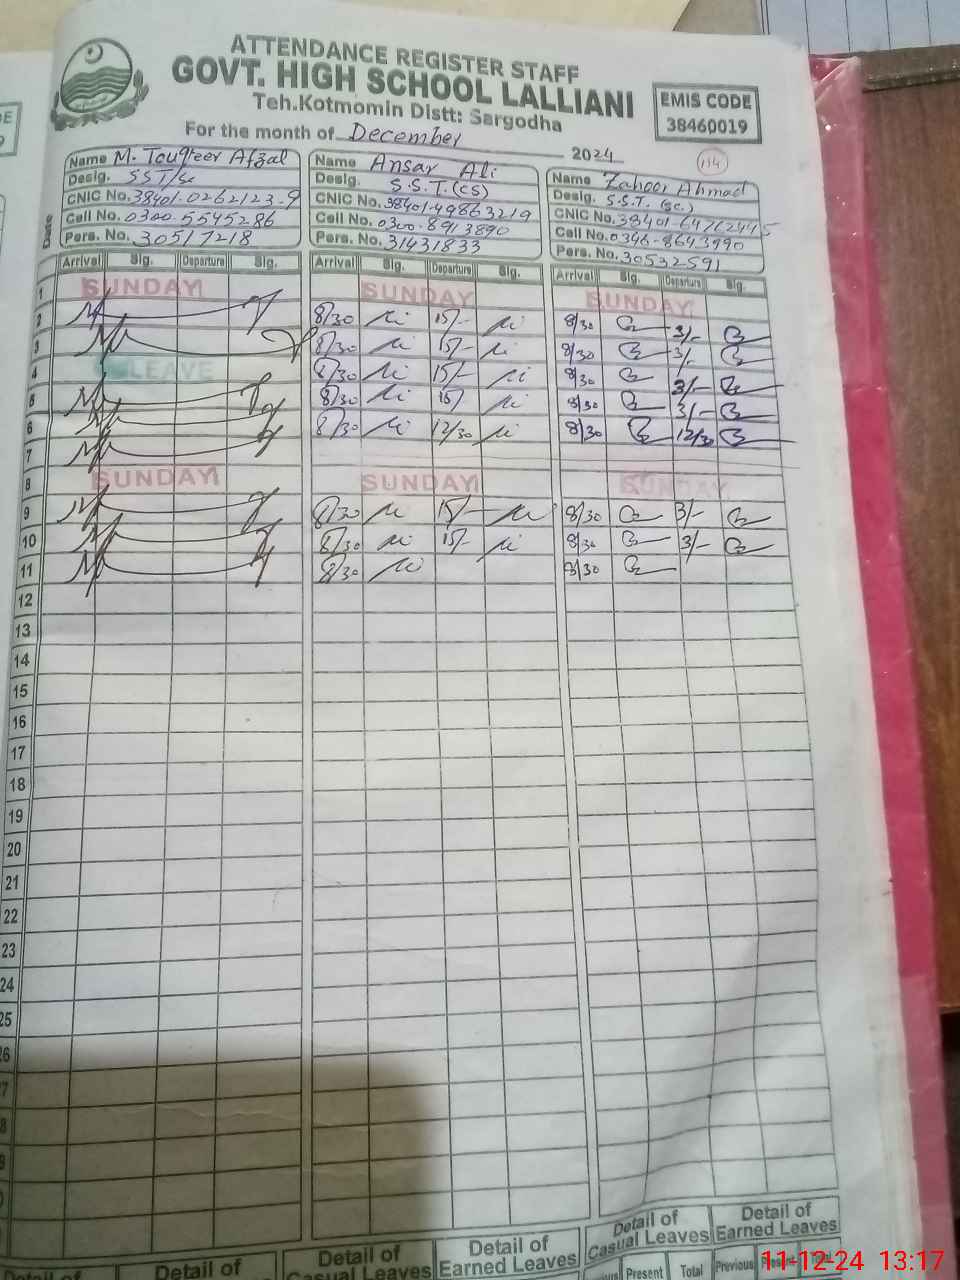 ATTENDANCE REGISTER STAFF
GOVT. HIGH SCHOOL LALLIANI
Teh.Kotmomin Distt: Sargodha
EMIS CODE
38460019
For the month of December 2024
114
Date
Name M. Touqeer Afzal
Desig. SST/Sc
CNIC No.38401-0262123-9
Cell No.0300-5545286
Pers. No. 30517218
Name Ansar Ali
Desig. S.S.T.(CS)
CNIC No.38401-4986321-9
Cell No.0300-8913890
Pers. No. 31431833
Name Zahoor Ahmad
Desig. S.S.T. (SC)
CNIC No.38401-6476244-5
Cell No.0346-8643990
Pers. No.30532591
Arrival Sig. Departure Sig. Arrival Sig. Departure Sig. Arrival Sig. Departure Sig.
1 SUNDAY SUNDAY SUNDAY
2 8/30 15/- 8/30 3/-
3 8/30 15/- 8/30 3/-
4 LEAVE 8/30 15/- 8/30 3/-
5 8/30 15/ 8/30 3/-
6 8/30 12/30 8/30 12/30
7
8 SUNDAY SUNDAY SUNDAY
9 8/30 15/- 8/30 3/-
10 8/30 15/- 8/30 3/-
11 8/30 8/30
12
13
14
15
16
17
18
19
20
21
22
23
24
25
26
Detail of Casual Leaves
Detail of Earned Leaves
Detail of Casual Leaves
Detail of Earned Leaves
Detail of
Present Total Previous Present
11-12-24 13:17